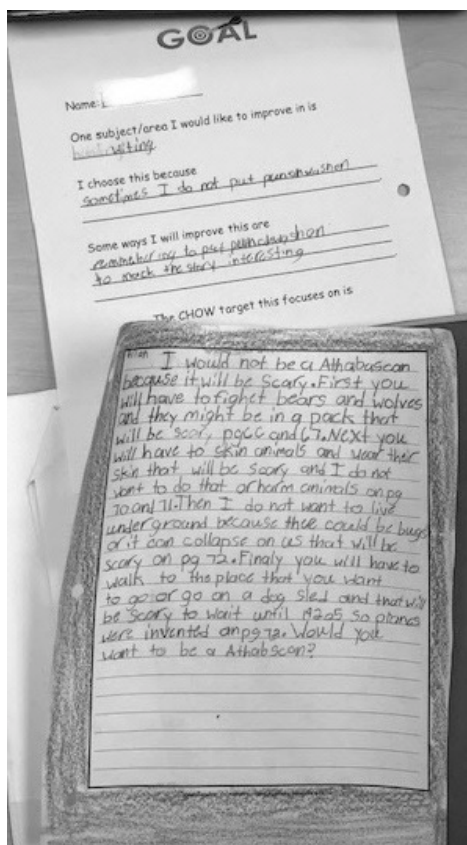 GOAL
Name:
One subject/area I would like to improve in is
writing
I choose this because
sometimes I do not put punshwashon
Some ways I will improve this are
remembering to put
to mack the story interesting
The CHOW target this focuses on is
I would not be a Athabascan
because it will be scary. First you
will have to fighet bears and wolves
and they might be in a pack that
will be scary pg66 and 67. Next you
will have to skin animals and wear their
skin that will be scary and I do not
want to do that or harm animals on pg
70 and 71. Then I do not want to live
underground because thee could be bugs
or it can collapse on us that will be
scary on pg 72. Finaly you will have to
walk to the place that you want
to go or go on a dog sled and that will
be scary to wait until so planes
were invented on pg 72. Would you
want to be a Athabscan?